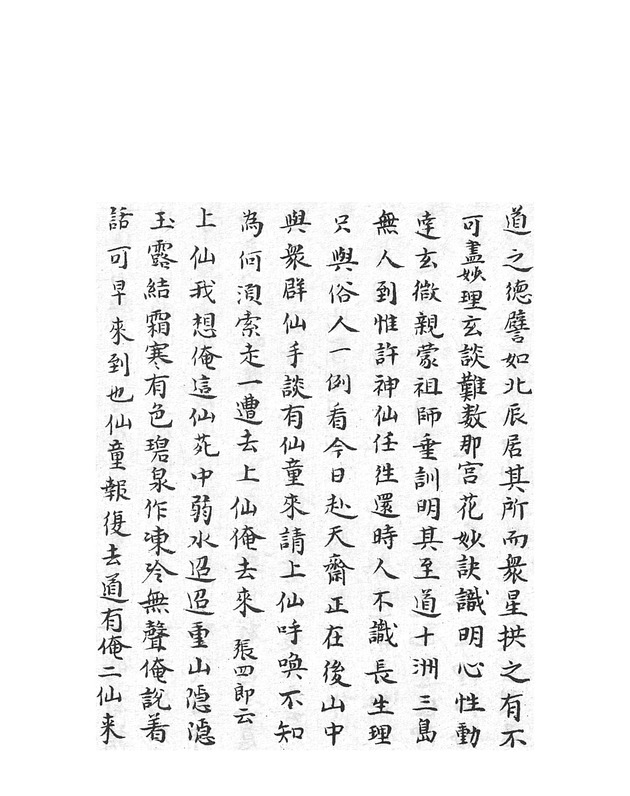 道之德譬如北辰居其所而衆星拱之有不
可盡妙理玄談難数那宫花妙訣識明心性動
達玄微親蒙祖師垂訓明其至道十洲三島
無人到惟許神仙任徃還時人不識長生理
只與俗人一例看今日赴天齋正在後山中
與衆群仙手談有仙童來請上仙呼喚不知
為何湏索走一遭去上仙俺去來 張四郎云
上仙我想俺這仙苑中弱水迢迢重山隱隱
玉露結霜寒有色碧泉作凍冷無聲俺説着
話可早來到也仙童報復去道有俺二仙来